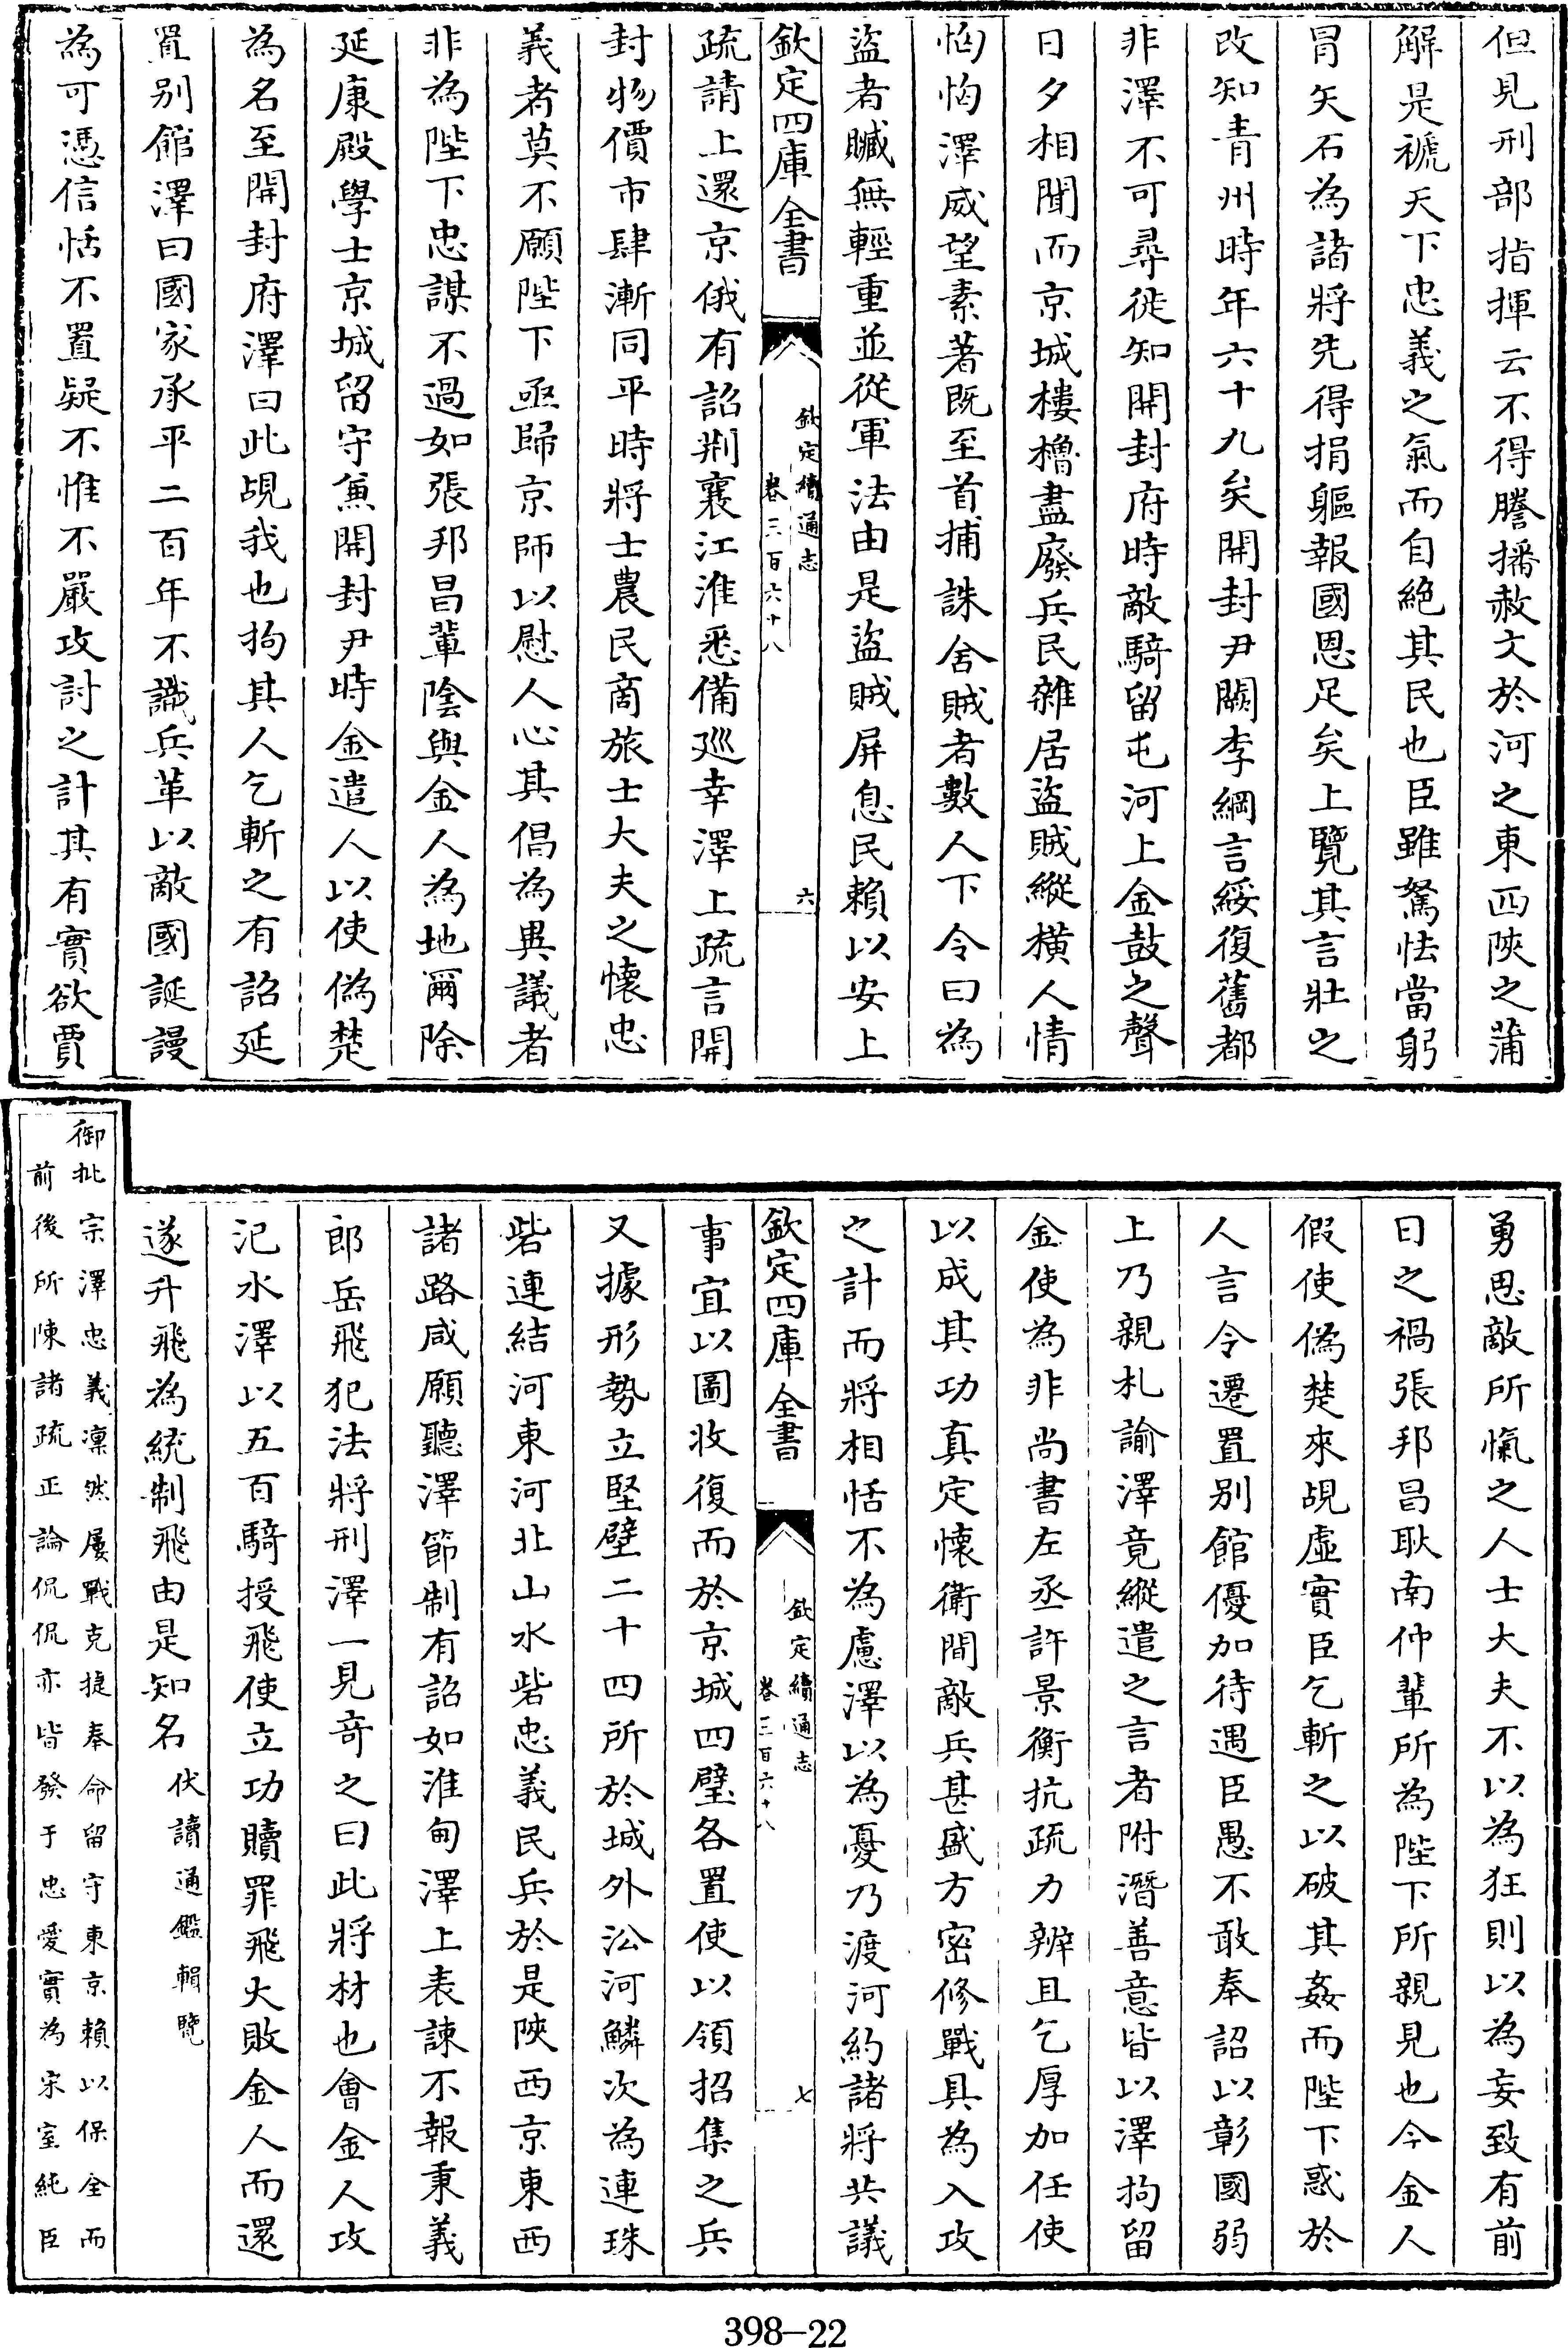 但見刑部指揮云不得謄播赦文於河之東西陜之蒲
解是褫天下忠義之氣而自絶其民也臣雖駑怯當躬
冒矢石為諸將先得捐軀報國恩足矣上覽其言壯之
改知青州時年六十九矣開封尹闕李綱言綏復舊都
非澤不可尋徙知開封府時敵騎留屯河上金鼓之聲
日夕相聞而京城樓櫓盡廢兵民雜居盜賊縱横人情
恟恟澤威望素著既至首捕誅舍賊者數人下令曰為
盜者贓無輕重並從軍法由是盜賊屏息民賴以安上
欽定四庫全書
欽定續通志
卷三百六十八
六
疏請上還京俄有詔荆襄江淮悉備廵幸澤上疏言開
封物價市肆漸同平時將士農民商旅士大夫之懐忠
義者莫不願陛下亟歸京師以慰人心其倡為異議者
非為陛下忠謀不過如張邦昌輩陰與金人為地爾除
延康殿學士京城留守兼開封尹時金遣人以使偽楚
為名至開封府澤曰此覘我也拘其人乞斬之有詔延
置别館澤曰國家承平二百年不識兵革以敵國誕謾
為可憑信恬不置疑不惟不嚴攻討之計其有實欲賈
勇思敵所愾之人士大夫不以為狂則以為妄致有前
日之禍張邦昌耿南仲輩所為陛下所親見也今金人
假使偽楚來覘虛實臣乞斬之以破其姦而陛下惑於
人言令遷置别館優加待遇臣愚不敢奉詔以彰國弱
上乃親札諭澤竟縱遣之言者附潛善意皆以澤拘留
金使為非尚書左丞許景衡抗疏力辨且乞厚加任使
以成其功真定懐衛間敵兵甚盛方密修戰具為入攻
之計而將相恬不為慮澤以為憂乃渡河約諸將共議
欽定四庫全書
欽定續通志
卷三百六十八
七
事宜以圖收復而於京城四壁各置使以領招集之兵
又據形勢立堅壁二十四所於城外沿河鱗次為連珠
砦連結河東河北山水砦忠義民兵於是陜西京東西
諸路咸願聽澤節制有詔如淮甸澤上表諫不報秉義
郎岳飛犯法將刑澤一見奇之曰此將材也會金人攻
汜水澤以五百騎授飛使立功贖罪飛大敗金人而還
遂升飛為統制飛由是知名 伏讀通鑑輯覽
御批宗澤忠義凛然屢戰克捷奉命留守東京賴以保全而
前後所陳諸疏正論侃侃亦皆發于忠愛實為宋室純臣
398-22